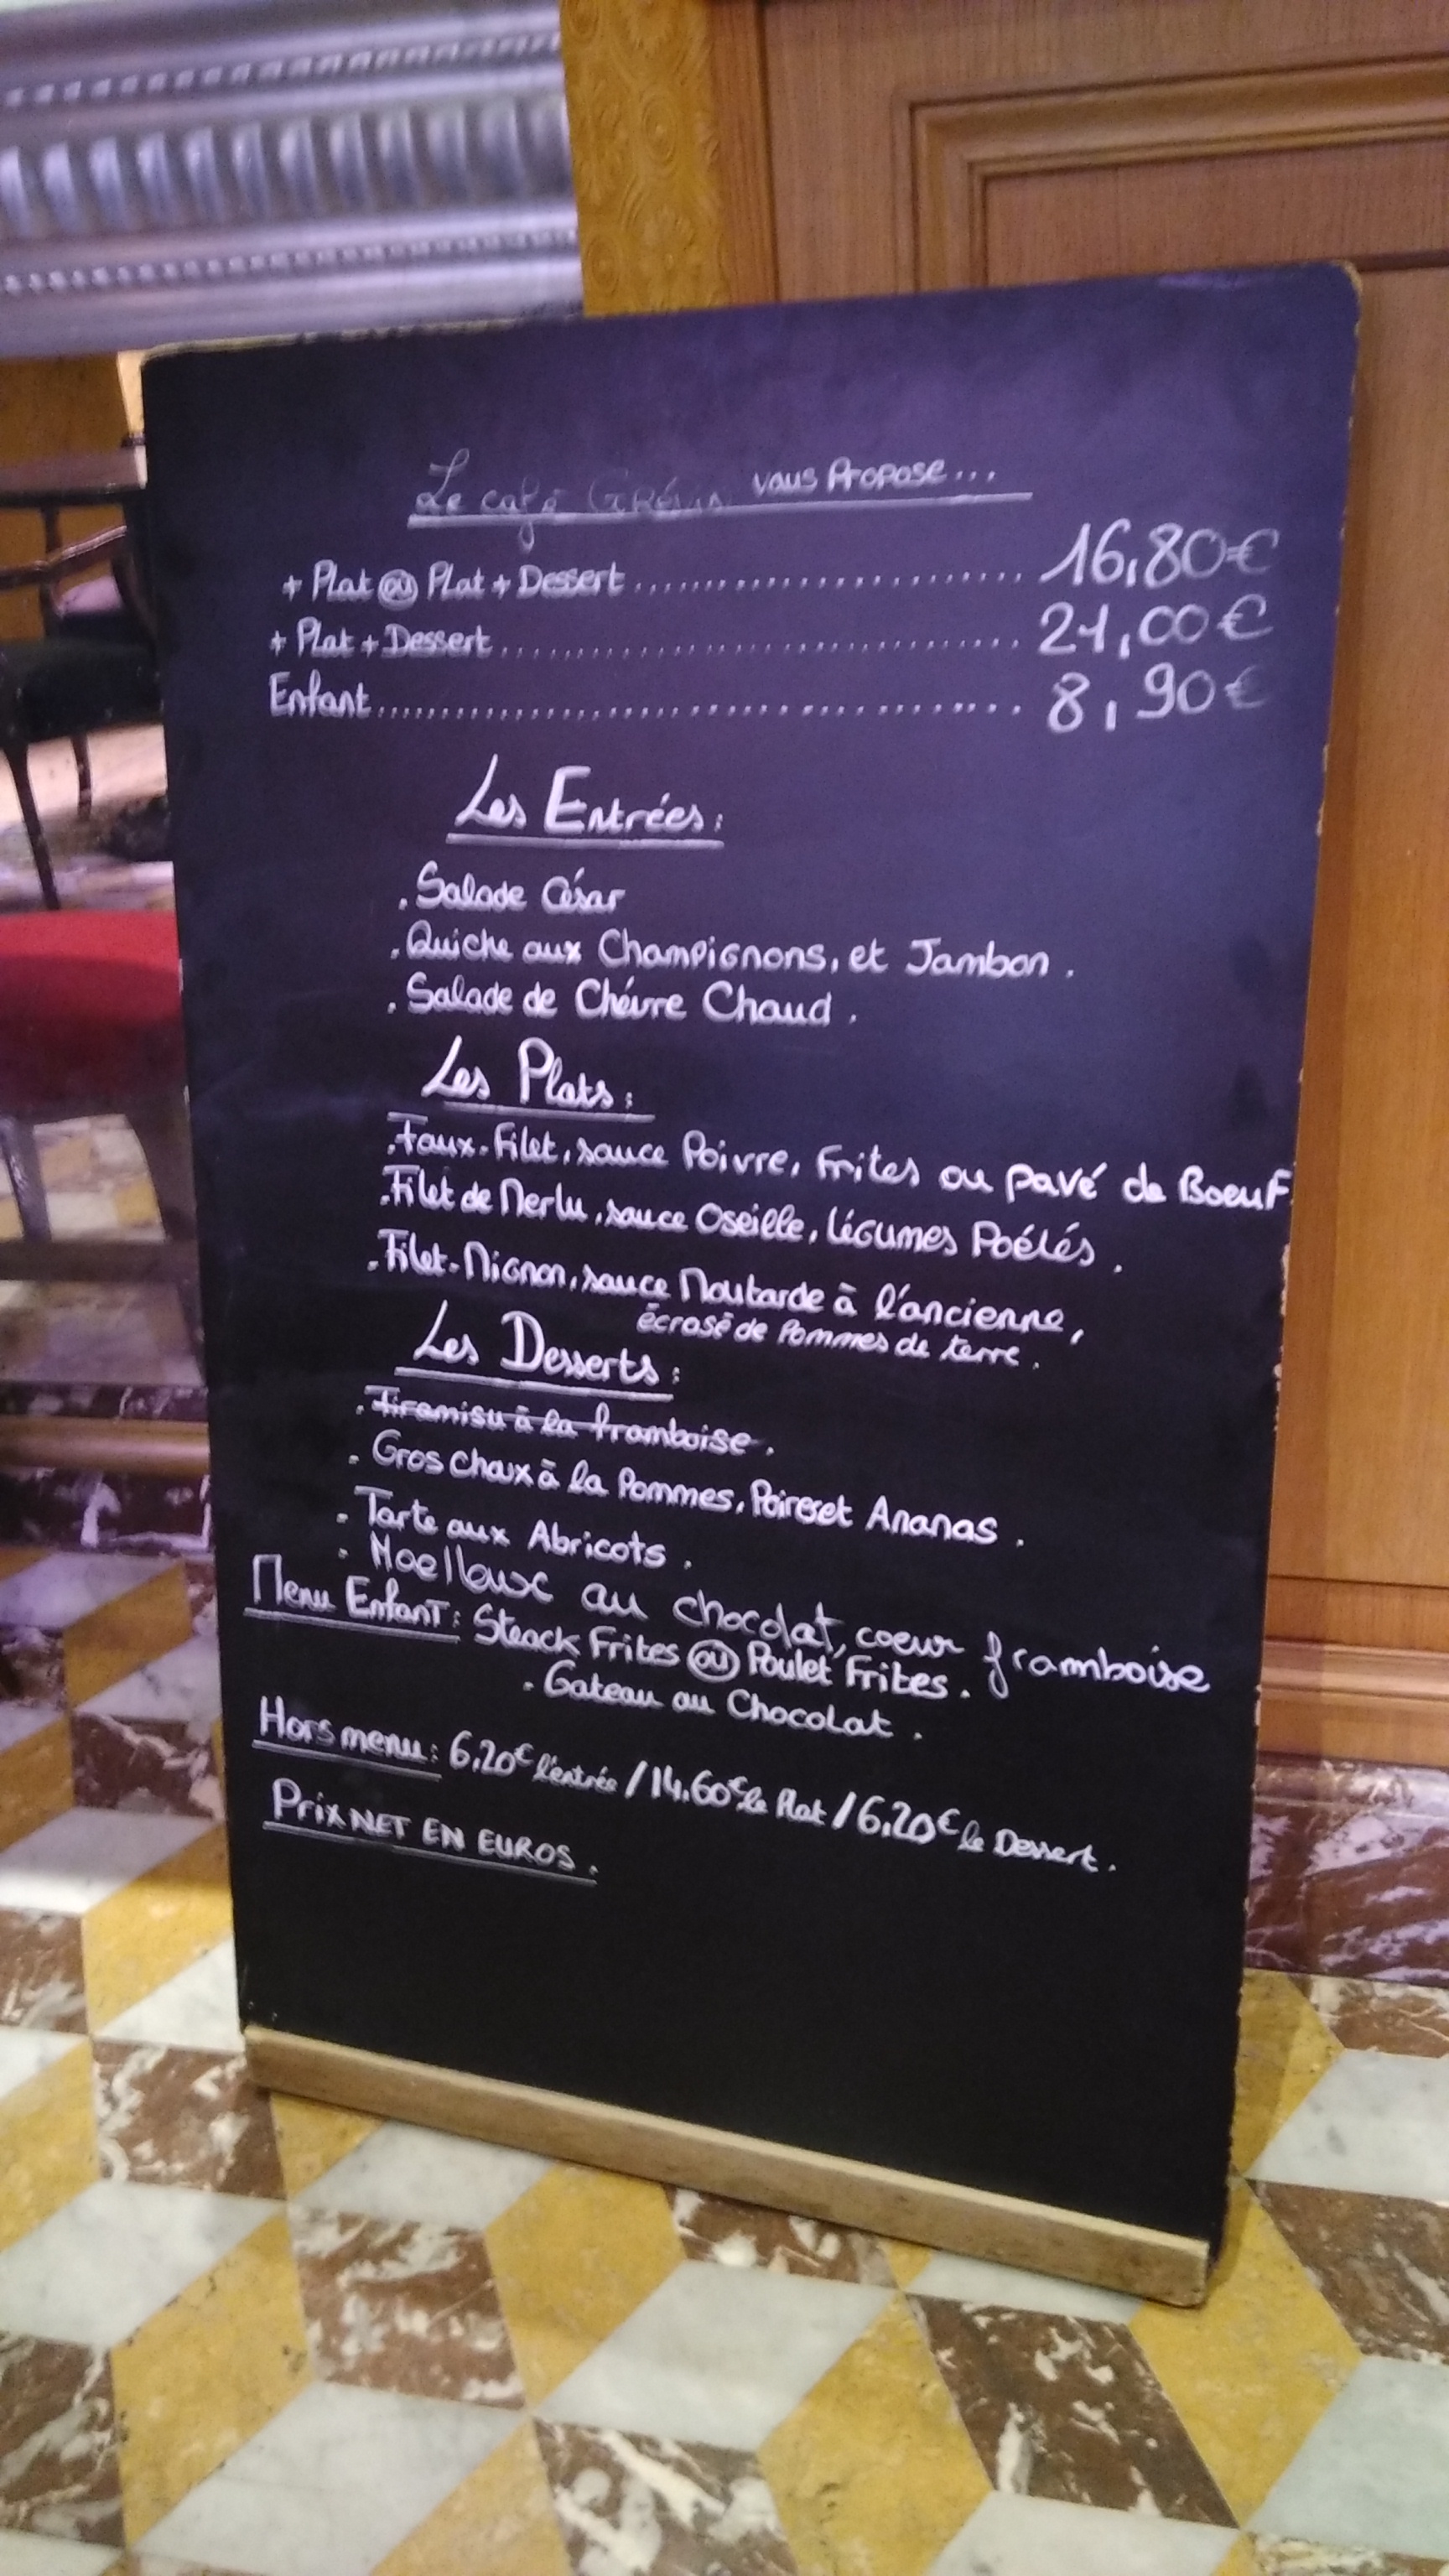 Le café Grévin vous Propose...
+ Plat ou Plat + Dessert........................ 16,80€
+ Plat + Dessert................................ 21,00€
Enfant.......................................... 8,90€
Les Entrées:
. Salade César
. Quiche aux Champignons, et Jambon.
. Salade de Chévre Chaud.
Les Plats:
. Faux-Filet, sauce Poivre, Frites ou pavé de Boeuf.
. Filet de Merlu, sauce Oseille, légumes Poélés.
. Filet-Mignon, sauce Moutarde à l'ancienne,
écrasé de Pommes de terre.
Les Desserts:
. Tiramisu à la framboise.
. Gros Choux à la Pommes, Poireset Ananas.
. Tarte aux Abricots.
. Moelleux au chocolat, coeur framboise
Menu Enfant: Steack Frites ou Poulet Frites.
. Gateau au Chocolat.
Hors menu: 6,20€ l'entrée / 14,60€ le Plat / 6,20€ le Dessert.
Prix NET EN EUROS.